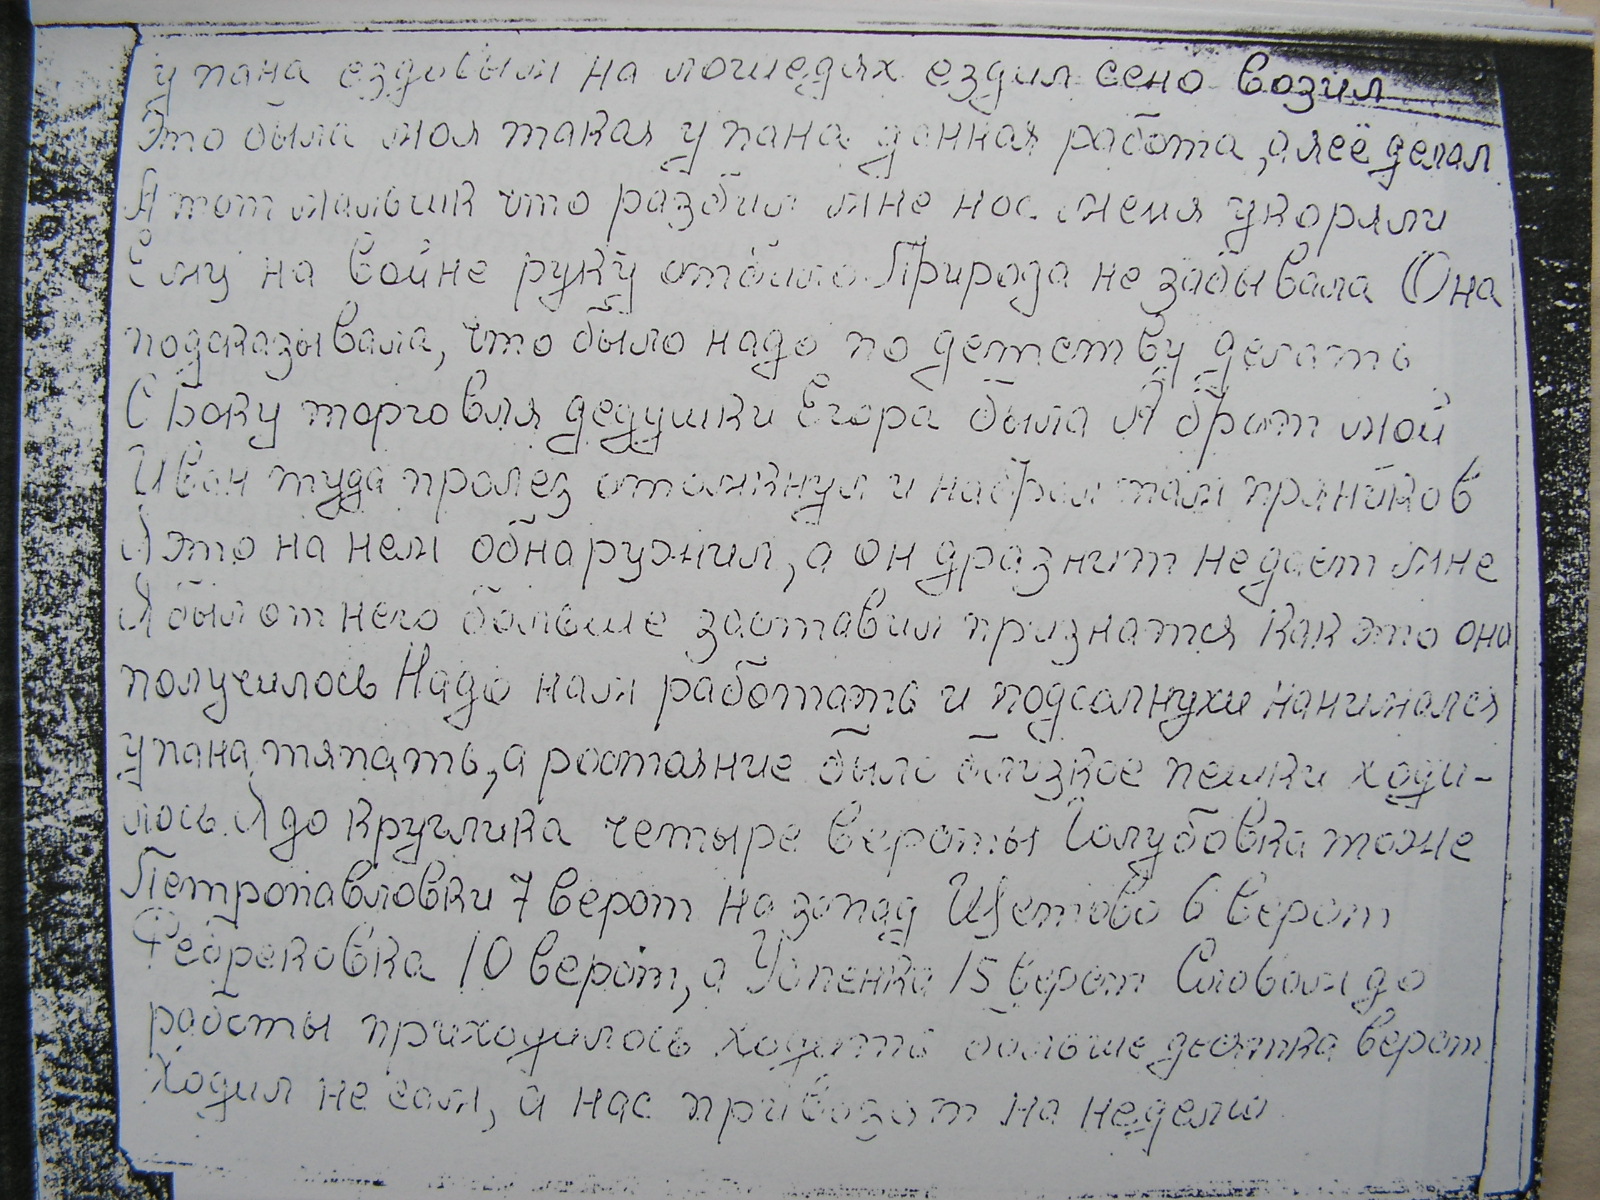 у пана ездивым на лошедях ездил сено возил
Это была моя такая у пана данная работа, а я её делал
А тот мальчик что разбил мне нос меня укоряли
Ему на войне руку отбило Природа не забывала Она
подсказывала, что было надо по детству делать
С боку торговля дедушки Егора была А брат мой
Иван туда пролез отомкнул и набрал там пряников
Я это на нем обнаружил, а он дразнит не дает мне
Я был от него больше заставил признатся как это она
получилось Надо нам работать и подсолнухи нанимался
у пана тяпать, аростояние было близкое пешки ходи-
лось. А до Круглика четыре версты Голубовка тоже
Петропавловки 7 верст на запад Цветово 6 верст
Федрековка 10 верст, а Успенка 15 верст Словом до
работы приходилось ходить больше десятка верст
Ходил не сам, а нас приводят на неделю